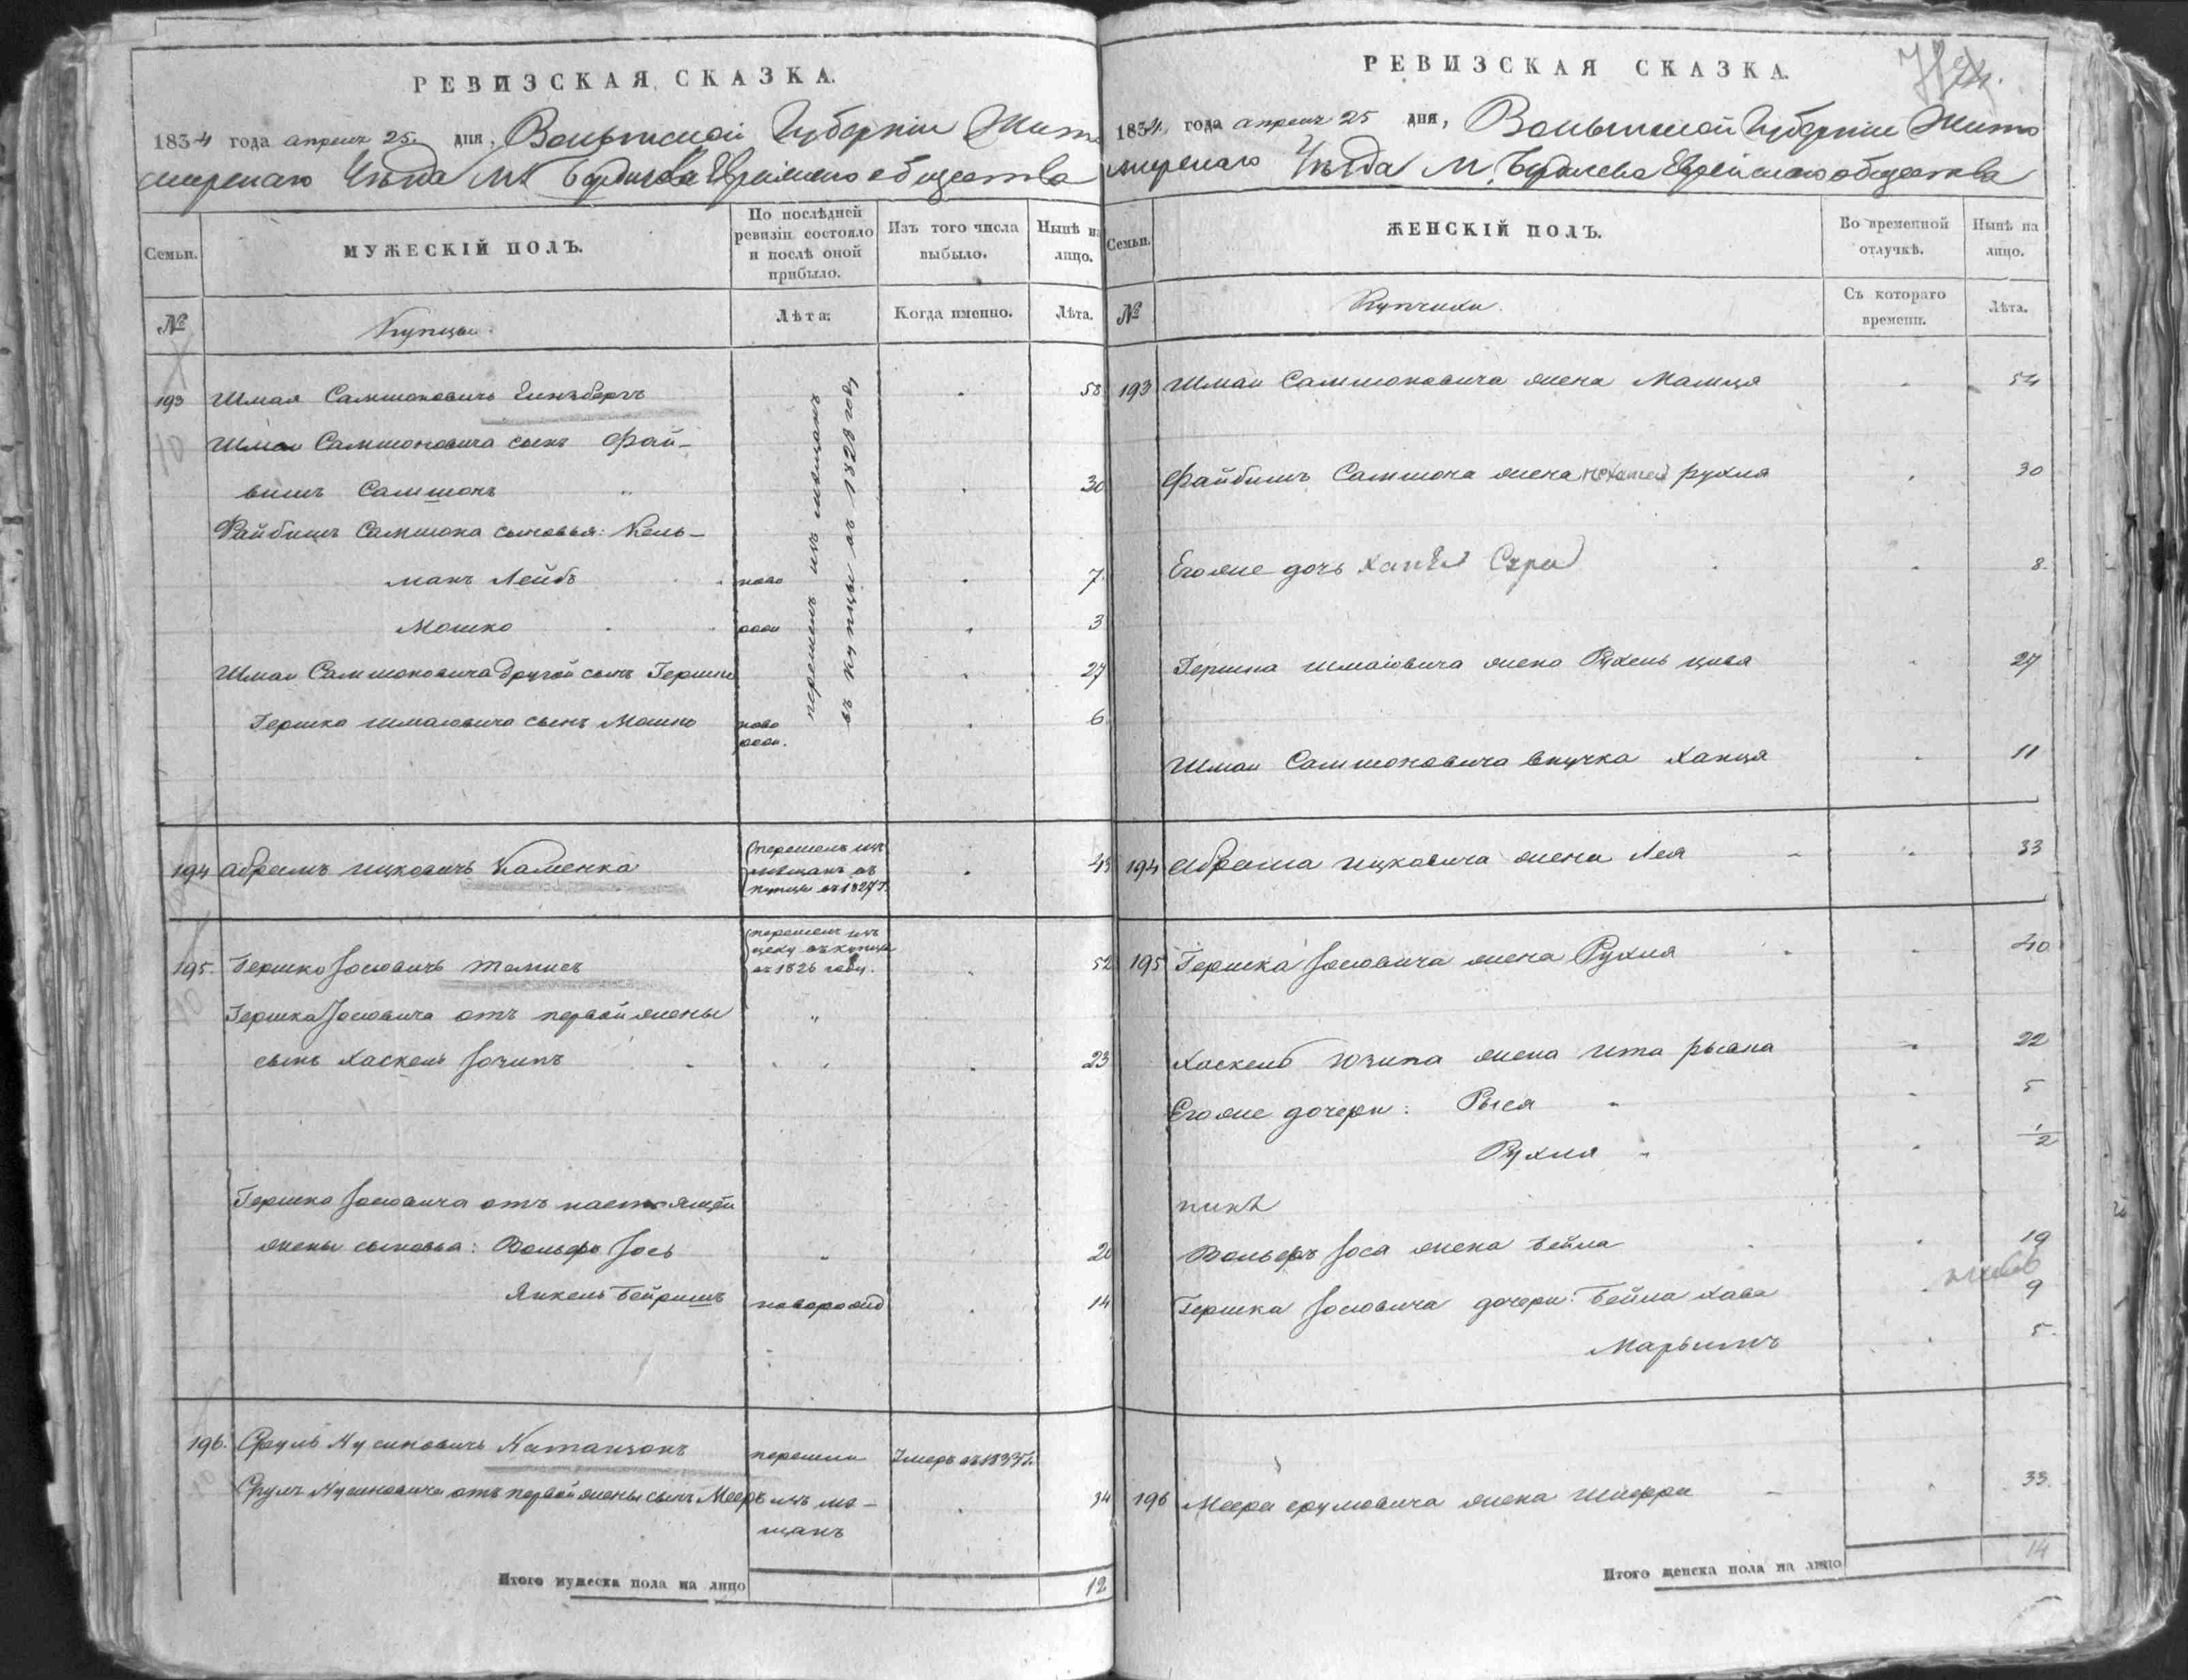 РЕВИЗСКАЯ СКАЗКА.
1834 года апреля 25 дня, Волынской Губернии Жито
мирскаго Уезда М. Бердичева Еврейскаго общества
Семьи.
МУЖЕСКІЙ ПОЛЪ.
По послѣдней ревизіи состояло и послѣ оной прибыло.
Изъ того числа выбыло.
Нынѣ на лицо.
№
Купцы.
Лѣта.
Когда именно.
Лѣта.
193 Шмая Самшоновичъ 58
Шмаи Самшоновича сынъ Фай-
вишъ Самшонъ 30
Файбишъ Самшона сыновья: Кель-
манъ Лейбъ ново 7
Мошко 3
Шмаи Самшоновича другой сынъ Гершко 27
Гершка Шмаіовича сынъ Мошко ново 6
перешли изъ мещанъ
въ купцы въ 1828 году
194 Абрамъ Ицковичъ Каменка перешелъ изъ мещанъ въ купцы въ 1827 г. 43
195. Гершко Іосіовичъ перешелъ изъ цеху въ купцы въ 1826 году. 52
Гершка Іосіовича отъ первой жены "
сынъ Хаскель Іозипъ 23
Гершка Іосіовича отъ настоящей
жены сыновья: Вольфъ Іось 20
Янкель Бейришъ новорожд 14
196. Сруль Нусиновичъ Натанзонъ перешли Умеръ въ 1833 г.
Сруля Нусиновича отъ первой жены сынъ Мееръ изъ ме- 34
щанъ
Итого мужеска пола на лицо 12
РЕВИЗСКАЯ СКАЗКА.
1834 года апреля 25 дня, Волынской Губернии Жито
мирскаго Уезда М. Бердичева Еврейскаго общества
Семьи.
ЖЕНСКІЙ ПОЛЪ.
Во временной отлучкѣ.
Нынѣ на лицо.
№
Купчихи.
Съ котораго времени.
Лѣта.
193 Шмаи Самшоновича жена Маміця 54
Файбишъ Самшона жена Рухля 30
Его же дочь Сура 8.
Гершка Шмаіовича жена Рухель Цивя 27
Шмаи Самшоновича внучка Ханця 11
194 Абрама Ицковича жена Лея 33
195 Гершка Іосіовича жена Рухля 40
Хаскель Юзипа жена Ита Рысана 22
Его же дочери: Рыся 5
Рухля 1/2
Вольфъ Іоса жена Бейла 19
Гершка Іосіовича дочери: Бейла Хава 9
Марьимъ 5.
196 Меера Срулiовича жена Шифра 33.
Итого женска пола на лицо 14